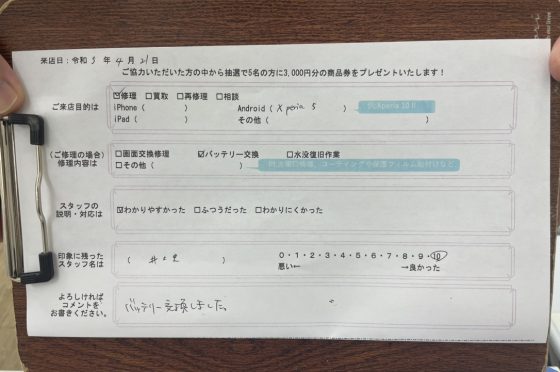 来店日：令和 5 年 4 月 21 日
ご協力いただいた方の中から抽選で5名の方に3,000円分の商品券をプレゼントいたします！
ご来店目的は
☑修理 □買取 □再修理 □相談
iPhone（ ） Android（Xperia 5 ） 例)Xperia 10 II
iPad（ ） その他（ ）
（ご修理の場合）
修理内容は
□画面交換修理 ☑バッテリー交換 □水没復旧作業
□その他（ ）
スタッフの
説明・対応は
☑わかりやすかった □ふつうだった □わかりにくかった
印象に残った
スタッフ名は
（ 井上 ）
0・1・2・3・4・5・6・7・8・9・10
悪い← →良かった
よろしければ
コメントを
お書きください。
バッテリー交換しました